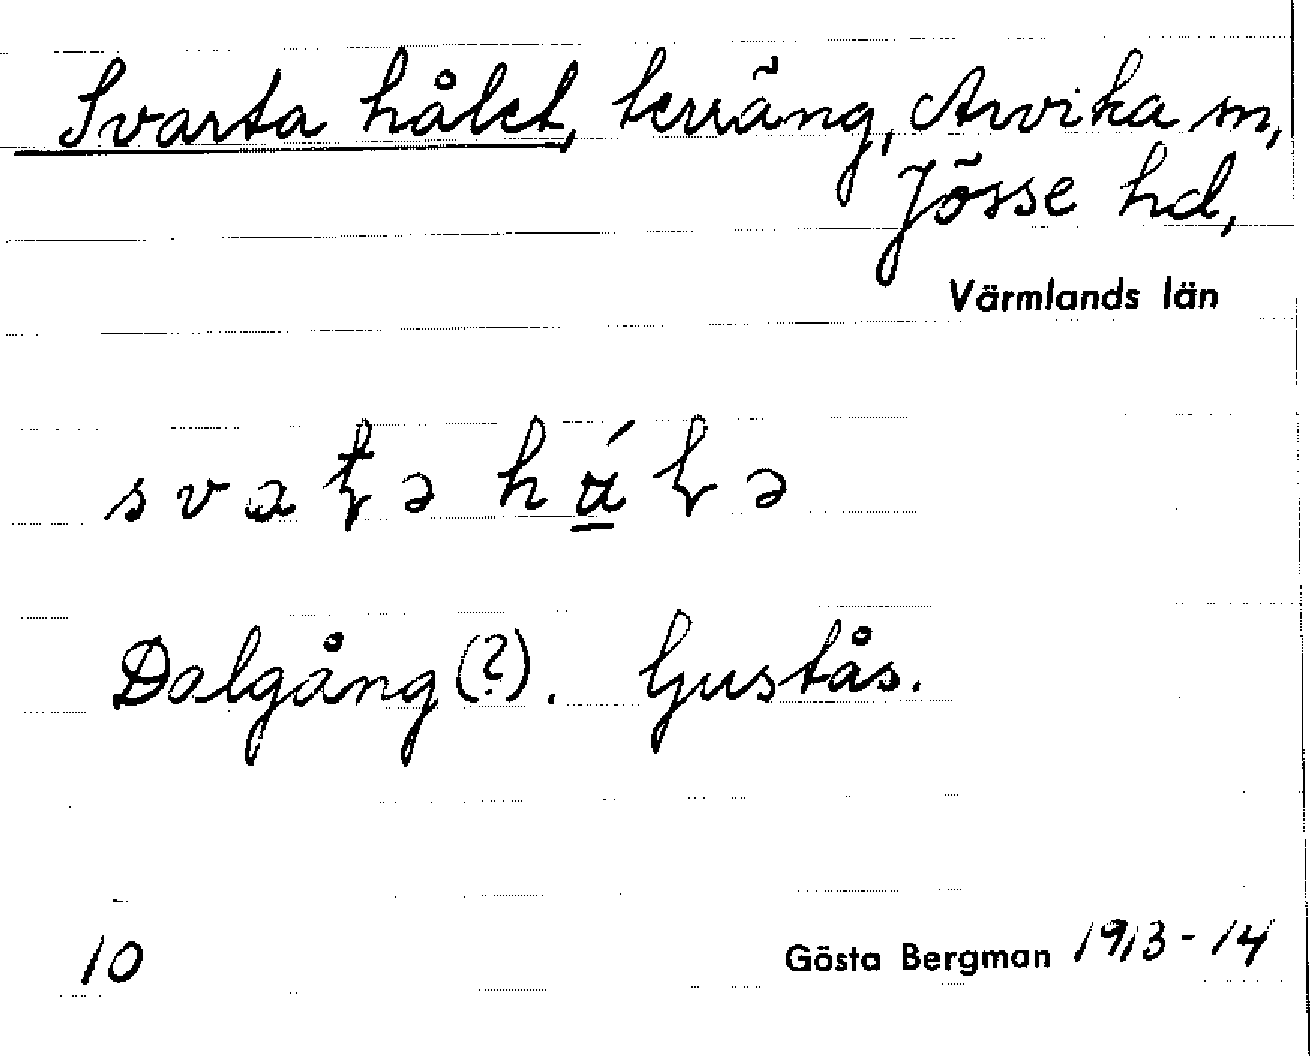 Svarta hålet, terräng, Arvika sn,
Jösse hd,
Värmlands län
Dalgång (?). Ljustås.
10 Gösta Bergman 1913-14